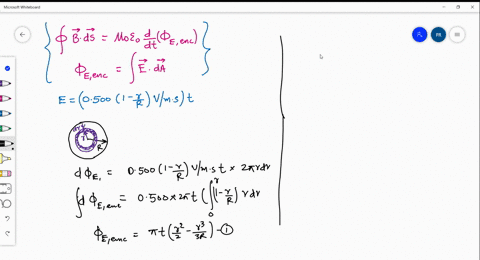 Microsoft Whiteboard
∮ B⃗·ds⃗ = μ₀ε₀ d/dt (Φ_E,enc)
Φ_E,enc = ∫ E⃗·dA⃗
E = (0.500 (1 - r/R) V/m·s) t
R
dΦ_E, = 0.500 (1 - r/R) V/m·s t × 2πrdr
∫ dΦ_E,enc = 0.500 × 2π t ( ∫₀^r (1 - r/R) r dr
Φ_E,enc = πt (r²/2 - r³/3R) - ①